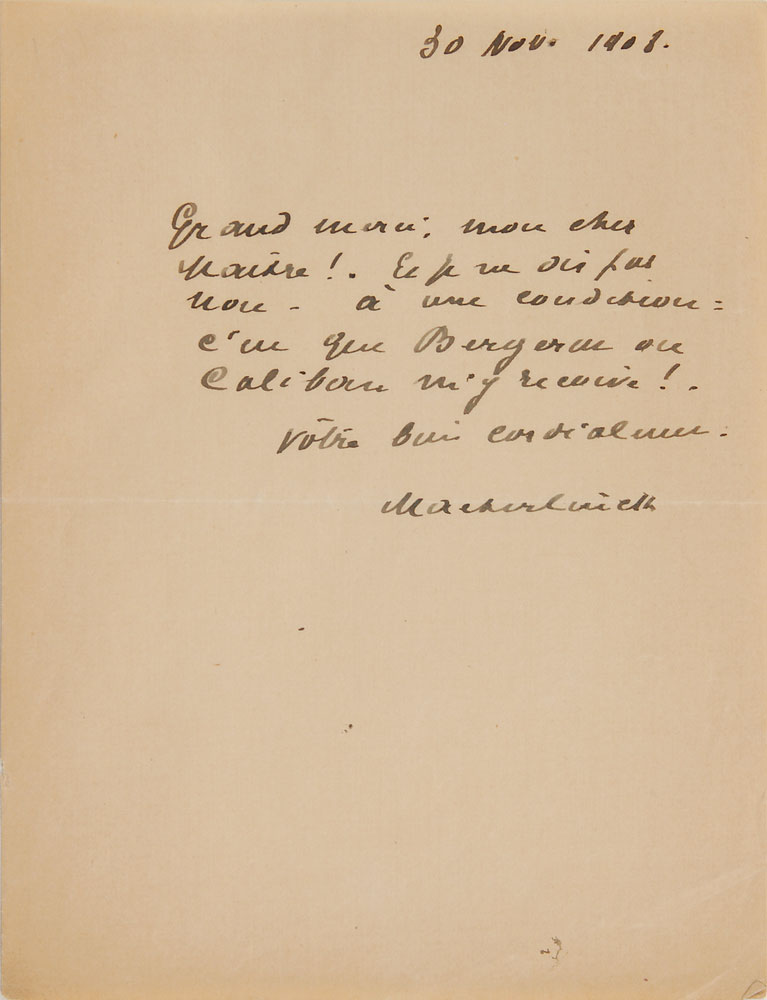 30 Nov. 1908.
Grand merci, mon cher
Maître!. Et je ne dis pas
non - à une condition =
c'est que Bergerat ou
Caliban m'y reçoive!.
Vôtre bien cordialement.
Maeterlinck